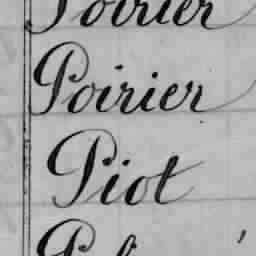 Poirier
Poirier
Piot